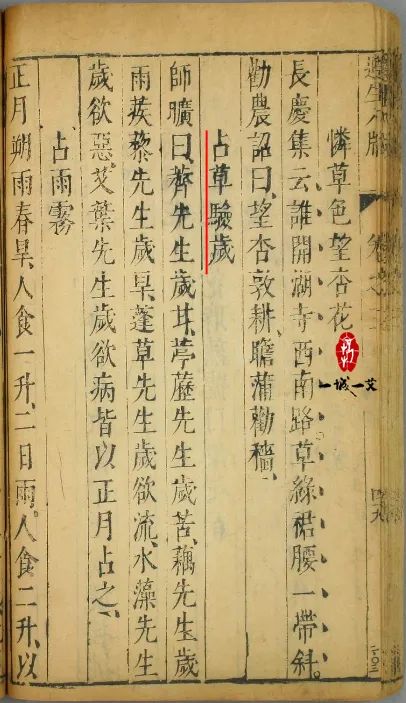 遵生八牋
四九
憐草色望杏花
長慶集云、誰開湖寺西南路、草綠裙腰一帶斜。
勸農詔曰、望杏敦耕、瞻蒲勸穡、
占草驗歲
師曠曰、薺先生歲甘、葶藶先生歲苦、藕先生歲
雨、蒺藜先生歲旱、蓬草先生歲欲流、水藻先生
歲欲惡、艾葉先生歲欲病、皆以正月占之、
占雨霧
正月朔雨、春旱、人食一升、二日雨、人食二升、以
一城一艾